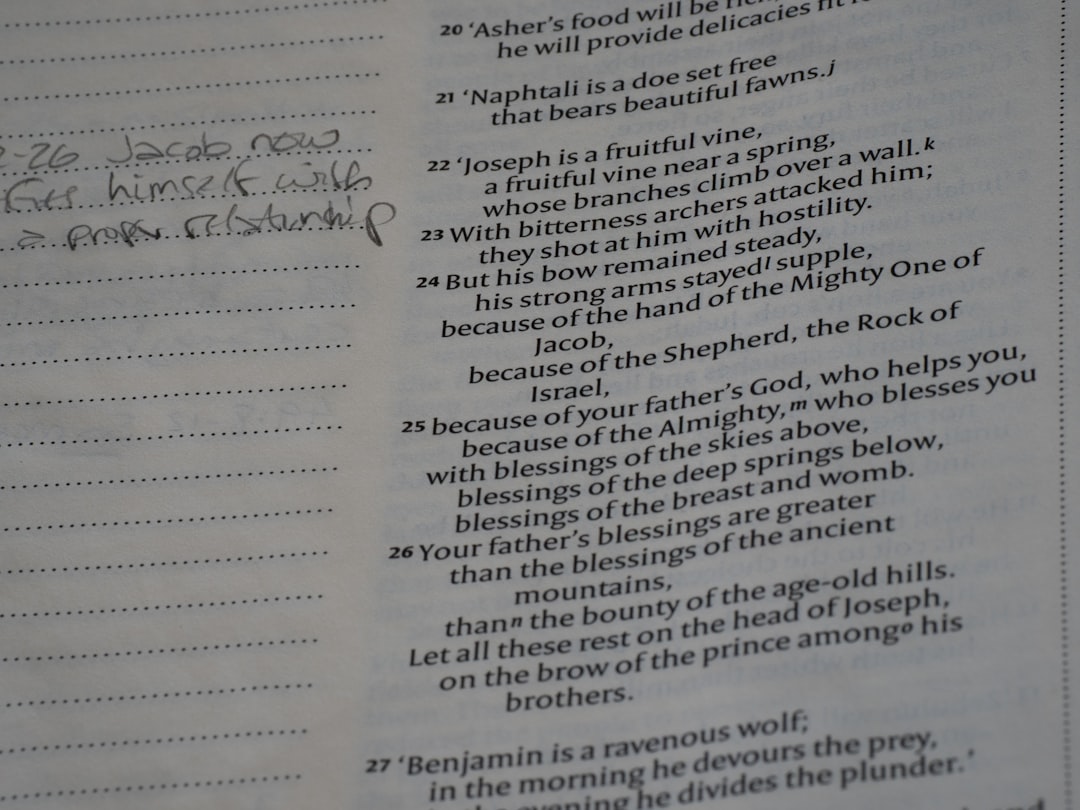 2-26 Jacob now
himself with
a proper relationship
20 ‘Asher’s food will be
he will provide delicacies fit
21 ‘Naphtali is a doe set free
that bears beautiful fawns.j
22 ‘Joseph is a fruitful vine,
a fruitful vine near a spring,
whose branches climb over a wall.k
23 With bitterness archers attacked him;
they shot at him with hostility.
24 But his bow remained steady,
his strong arms stayedl supple,
because of the hand of the Mighty One of
Jacob,
because of the Shepherd, the Rock of
Israel,
25 because of your father’s God, who helps you,
because of the Almighty,m who blesses you
with blessings of the skies above,
blessings of the deep springs below,
blessings of the breast and womb.
26 Your father’s blessings are greater
than the blessings of the ancient
mountains,
thann the bounty of the age-old hills.
Let all these rest on the head of Joseph,
on the brow of the prince amongo his
brothers.
27 ‘Benjamin is a ravenous wolf;
in the morning he devours the prey,
evening he divides the plunder.’